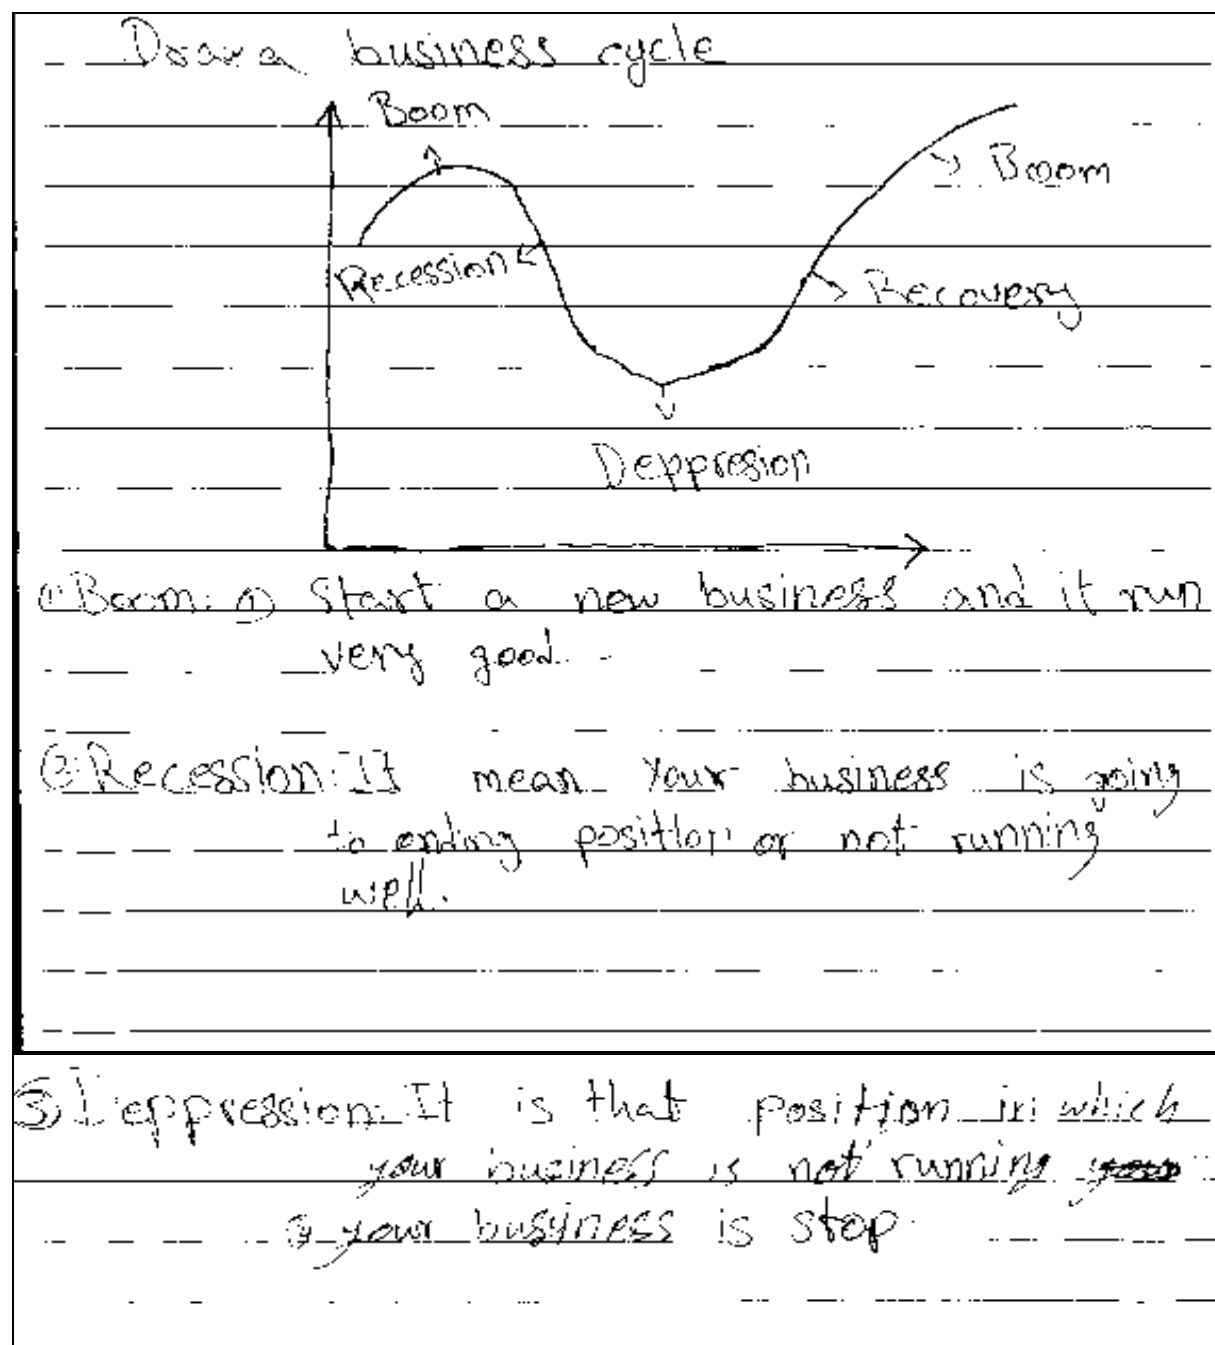 Draw a business cycle
Boom
Boom
Recession
Recovery
Deppresion
① Boom: ① Start a new business and it run
very good.
② Recession: It mean your business is going
to ending position or not running
well.
③ Deppression: It is that position in which
your business is not running
your business is stop.